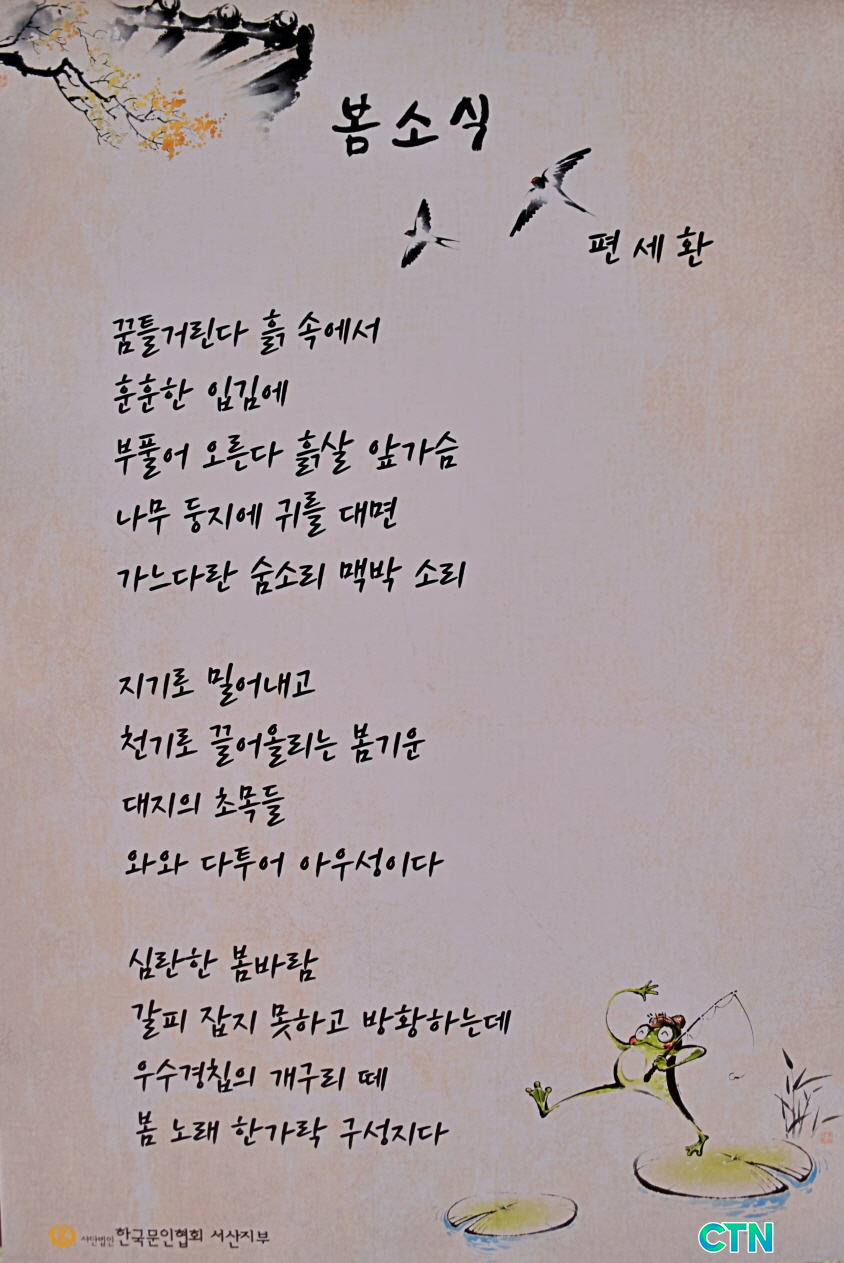 봄소식
편세환
꿈틀거린다 흙 속에서
훈훈한 입김에
부풀어 오른다 흙살 앞가슴
나무 둥지에 귀를 대면
가느다란 숨소리 맥박 소리
지기로 밀어내고
천기로 끌어올리는 봄기운
대지의 초목들
와와 다투어 아우성이다
심란한 봄바람
갈피 잡지 못하고 방황하는데
우수경칩의 개구리 떼
봄 노래 한가락 구성지다
사단법인 한국문인협회 서산지부
CTN